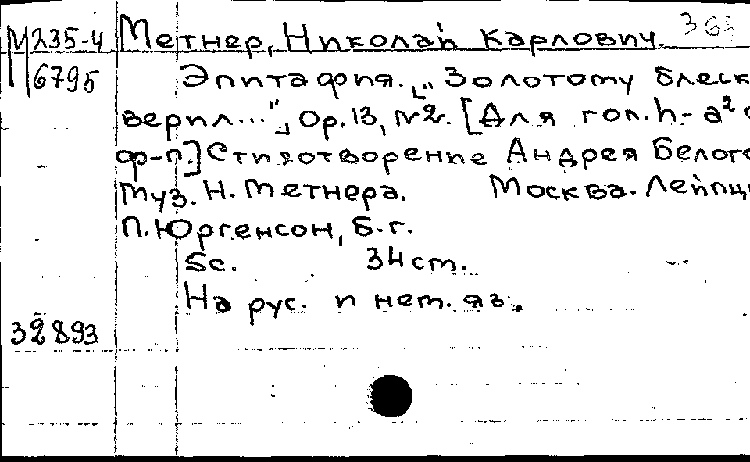 М235-4 Метнер, Николай Карлович. 365
6795 Эпитафия. „Золотому блеск
верил..."„ Ор.13, №2. [Для гол. h - a² с
ф-п.] Стихотворение Андрея Белого
Муз. Н. Метнера. Москва. Лейпци
П. Юргенсон, б. г.
5с. 34 см.
На рус. и нем. яз.
32893